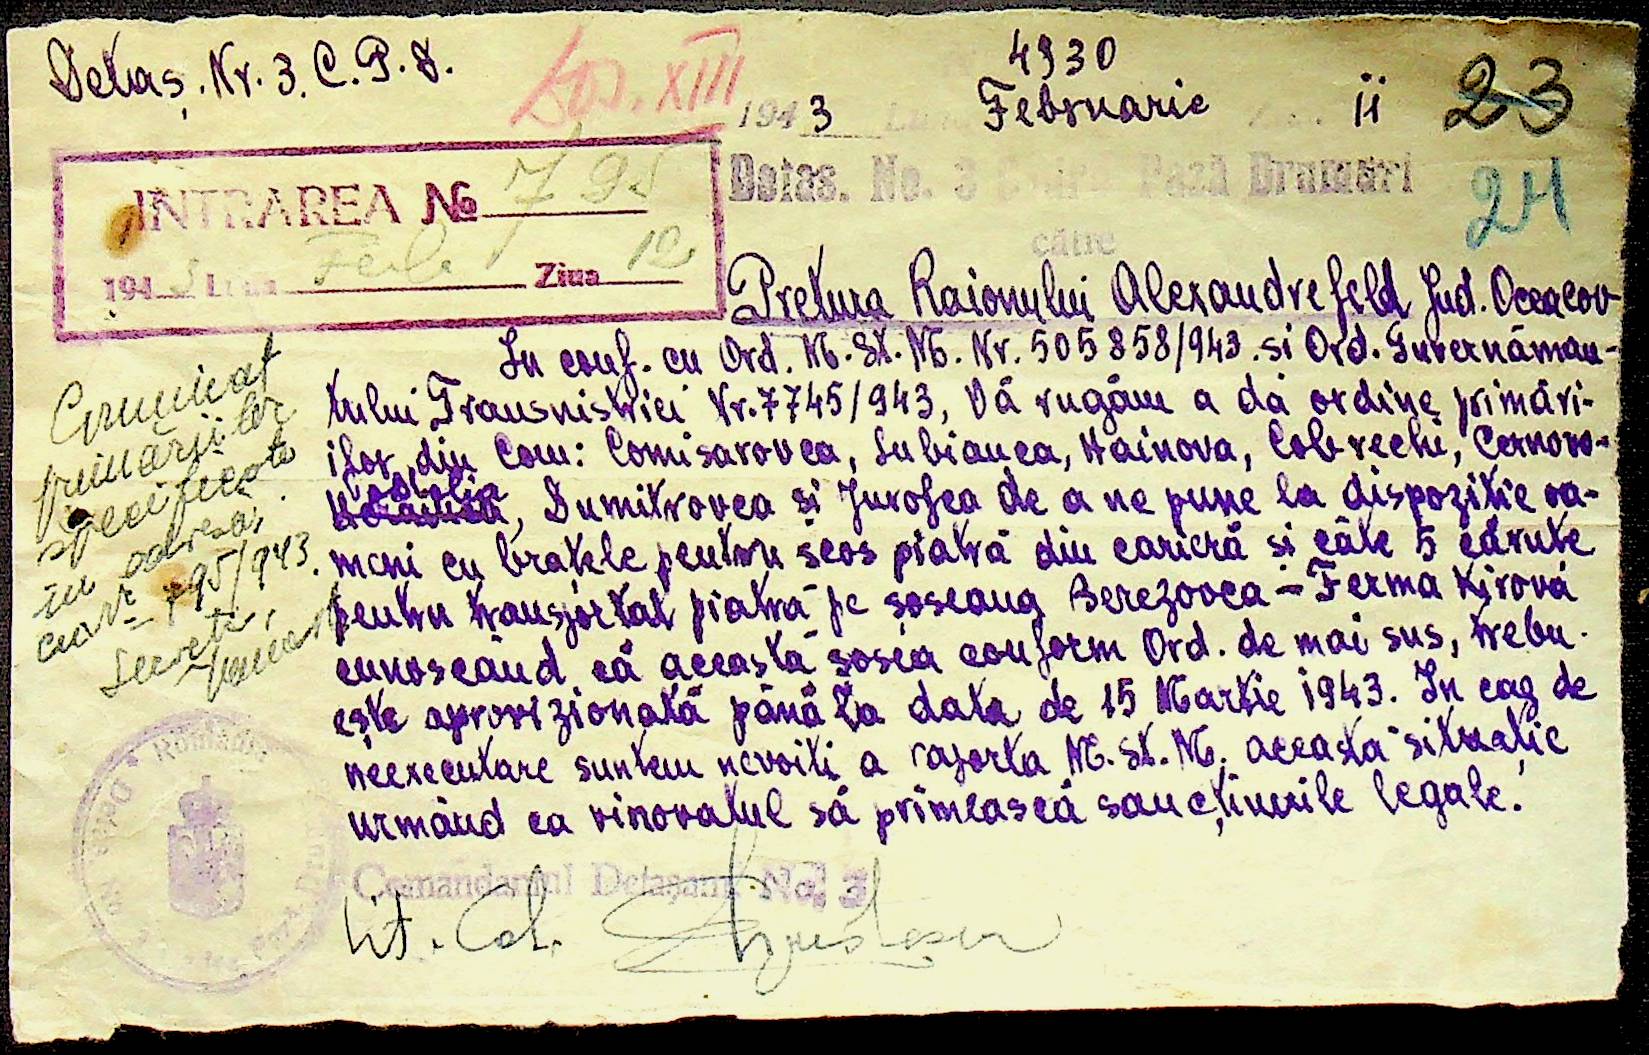 Detaș. Nr. 3. C. P. D.
Dos. XIII
4930
1943 Februarie 11
23
24
Detas. No. 3 Pază Drumuri
către
INTRAREA № 795
1943 Luna Feb. Ziua 12
Pretura Raionului Alexandrefeld Jud. Oceacov
In conf. cu Ord. M. St. M. Nr. 505858/943. si Ord. Guvernăman-
tului Transnistriei Nr. 7745/943, Vă rugăm a da ordine primări-
ilor din Com: Comisarovca, Lubianca, Hainova, Colbrechi, Cernovo-
, Dumitrovca si Jurofca de a ne pune la dispozitie oa-
meni cu bratele pentru scos piatră din carieră si câte 5 cărute
pentru transportat piatră pe șoseaua Berezovca – Ferma Kirova
cunoscând că această șosea conform Ord. de mai sus, trebu.
ește aprovizionată până la data de 15 Martie 1943. In caz de
neexecutare suntem nevoiti a raporta M. St. M. aceasta situație
urmând ca vinovatul să primească sancțiunile legale.
Comunicat
primăriilor
specificate
în adresa
cu № 795/943.
Secretar,
România
Comandantul Detașam. No. 3
Lt. Col.